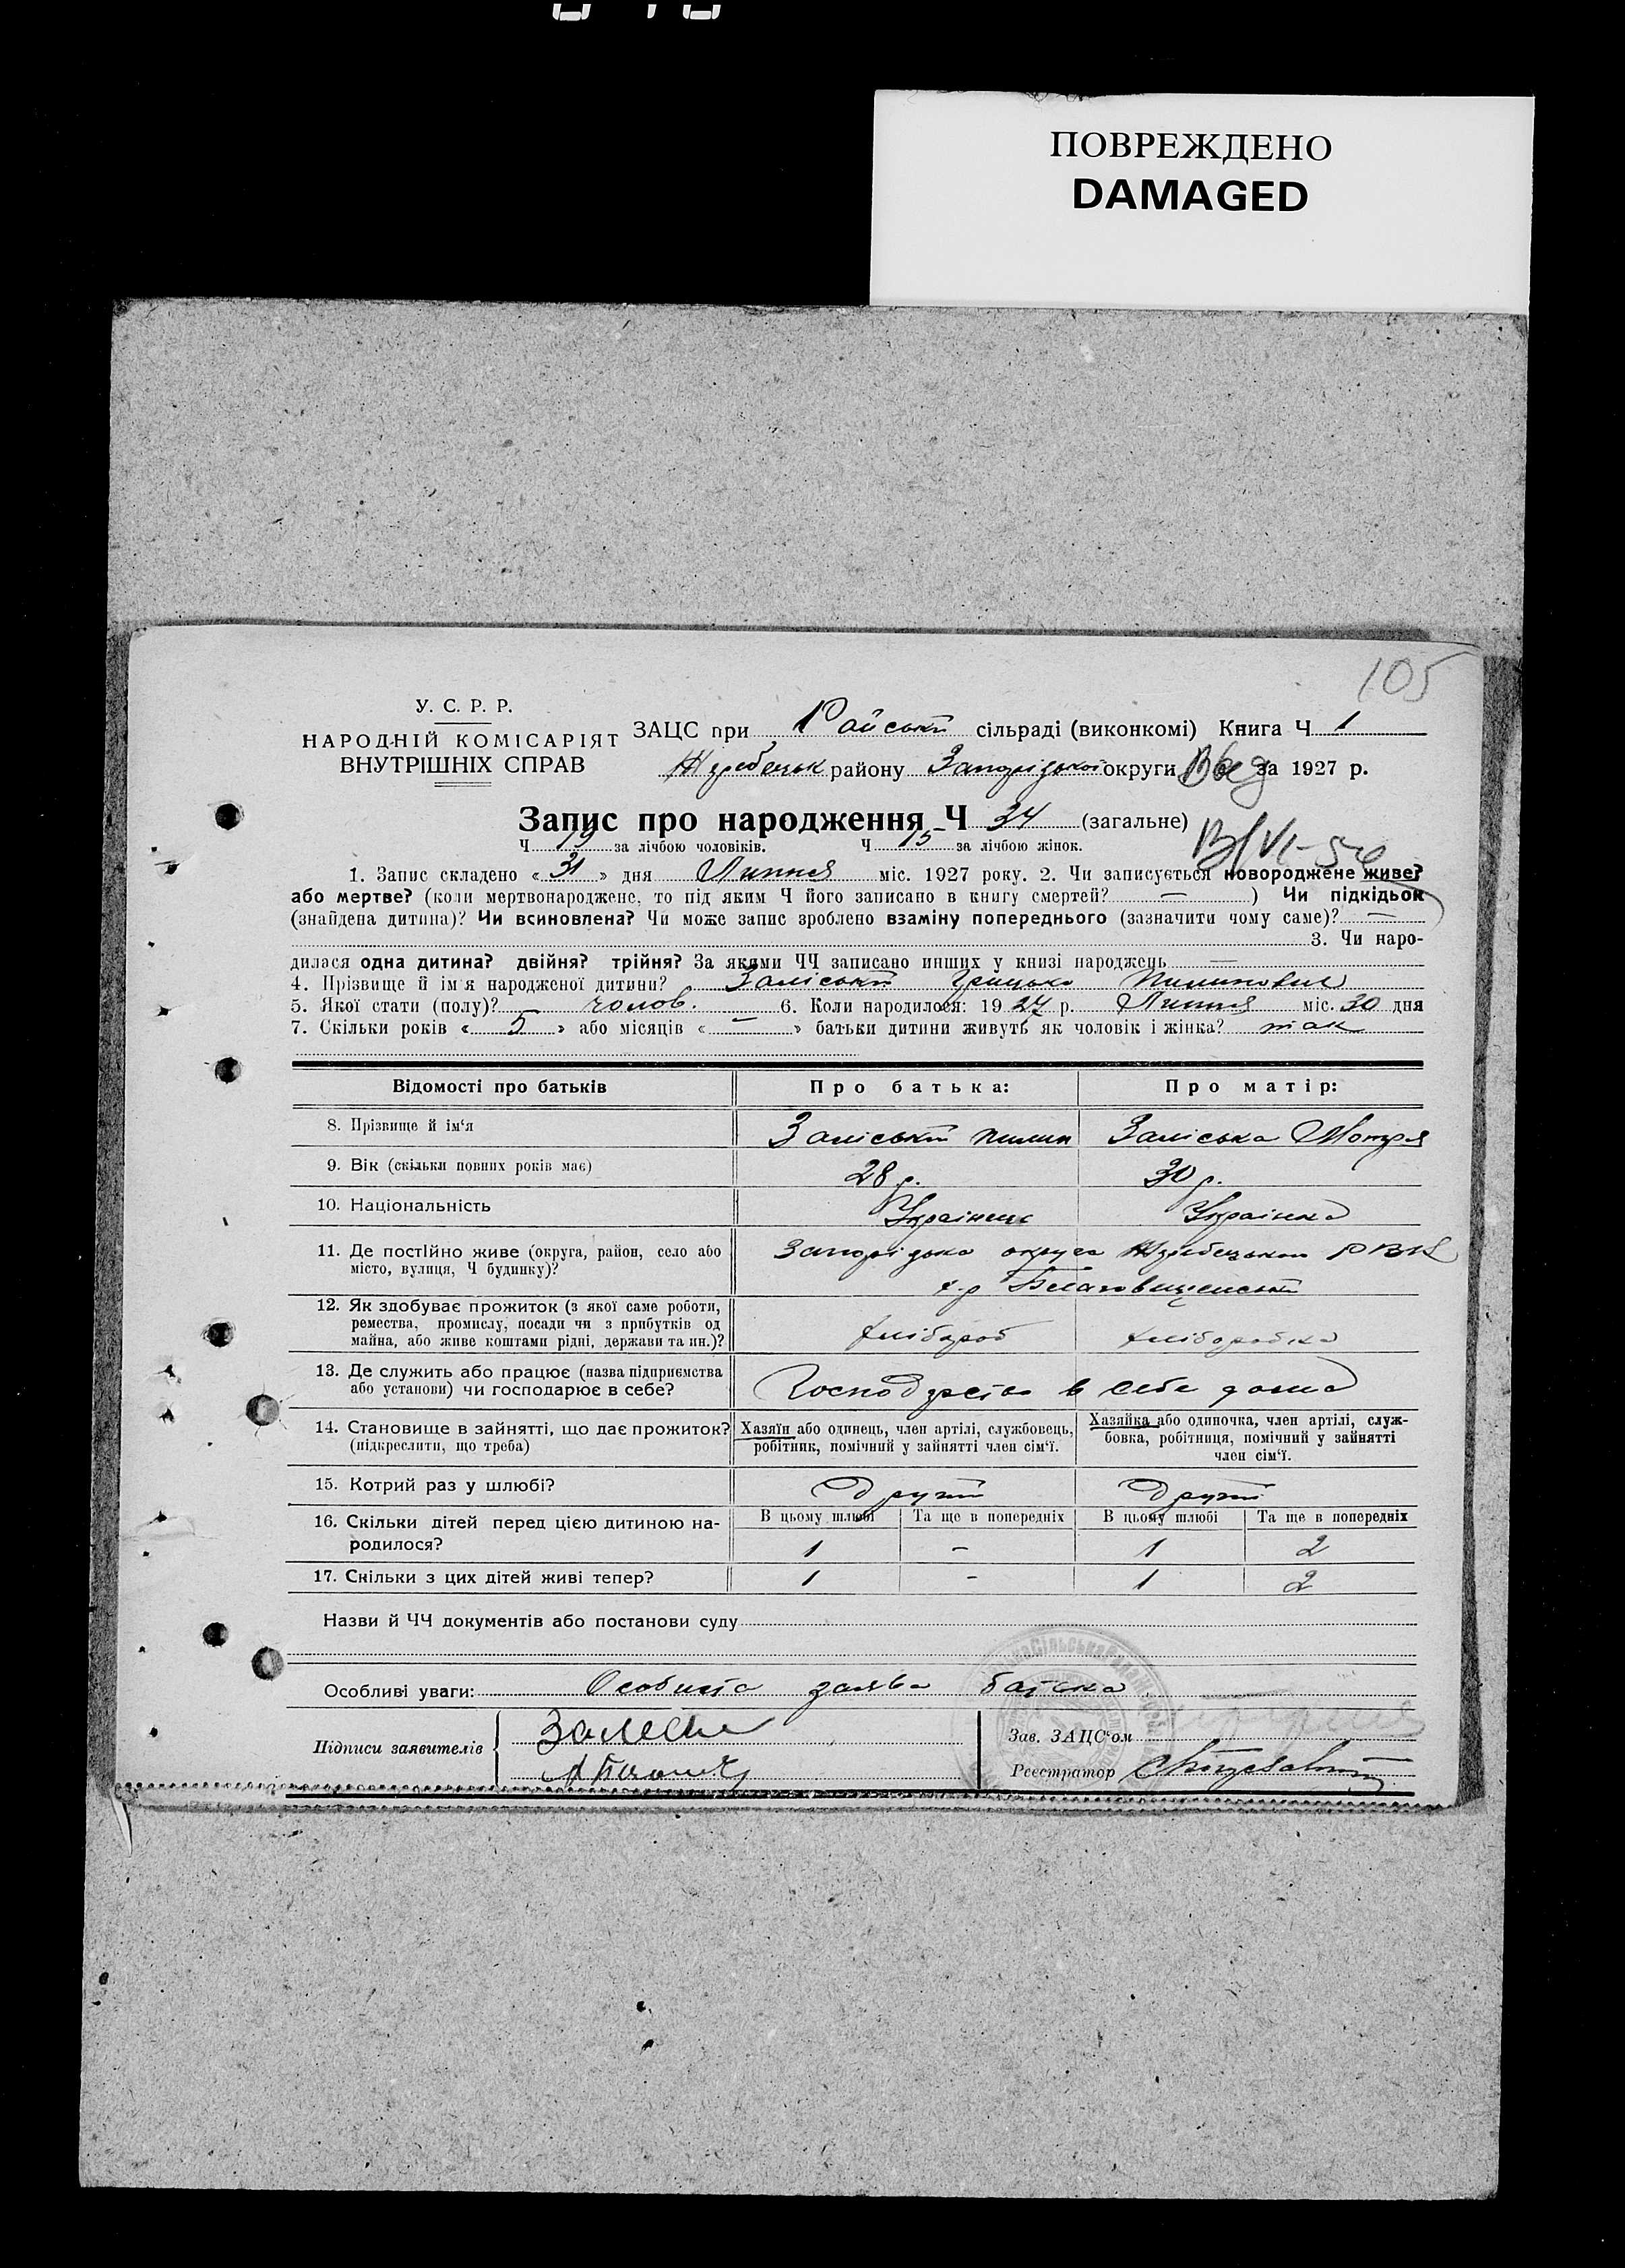 ПОВРЕЖДЕНО
DAMAGED
105
У. С. Р. Р.
НАРОДНІЙ КОМІСАРІЯТ
ВНУТРІШНІХ СПРАВ
ЗАЦС при Райській сільраді (виконкомі) Книга Ч 1
Жеребецьк району Запорізької округи за 1927 р.
Запис про народження Ч 34 (загальне)
Ч 19 за лічбою чоловіків. Ч 15 за лічбою жінок.
1. Запис складено « 31 » дня Липня міс. 1927 року. 2. Чи записується новороджене живе?
або мертве? (коли мертвонароджене, то під яким Ч його записано в книгу смертей? — ) Чи підкідьок
(знайдена дитина)? Чи всиновлена? Чи може запис зроблено взаміну попереднього (зазначити чому саме)? —
3. Чи наро-
дилася одна дитина? двійня? трійня? За якими ЧЧ записано инших у книзі народжень —
4. Прізвище й ім'я народженої дитини? Заліський Грицько Пилипович
5. Якої стати (полу)? чолов. 6. Коли народилося: 1927 р. Липня міс. 30 дня
7. Скільки років « 5 » або місяців « — » батьки дитини живуть як чоловік і жінка? так
Відомості про батьків Про батька: Про матір:
8. Прізвище й ім'я Заліський Пилип Заліська Мотря
9. Вік (скільки повних років має) 28 р. 30 р.
10. Національність Українець Українка
11. Де постійно живе (округа, район, село або Запорізька округа Жеребецький РВК
місто, вулиця, Ч будинку)? х-р Благовіщенський
12. Як здобуває прожиток (з якої саме роботи,
ремества, промислу, посади чи з прибутків од
майна, або живе коштами рідні, держави та ин.)? хлібороб хліборобка
13. Де служить або працює (назва підприємства
або установи) чи господарює в себе? Господарство в себе дома
14. Становище в зайнятті, що дає прожиток? Хазяїн або одинець, член артілі, службовець, Хазяйка або одиночка, член артілі, служ-
(підкреслити, що треба) робітник, помічний у зайнятті член сім'ї. бовка, робітниця, помічний у зайнятті
член сім'ї.
15. Котрий раз у шлюбі? Другий Другий
16. Скільки дітей перед цією дитиною на- В цьому шлюбі Та ще в попередніх В цьому шлюбі Та ще в попередніх
родилося? 1 - 1 2
17. Скільки з цих дітей живі тепер? 1 - 1 2
Назви й ЧЧ документів або постанови суду
Особливі уваги: Особиста заява батька
Підписи заявителів
Зав. ЗАЦС'ом
Реєстратор